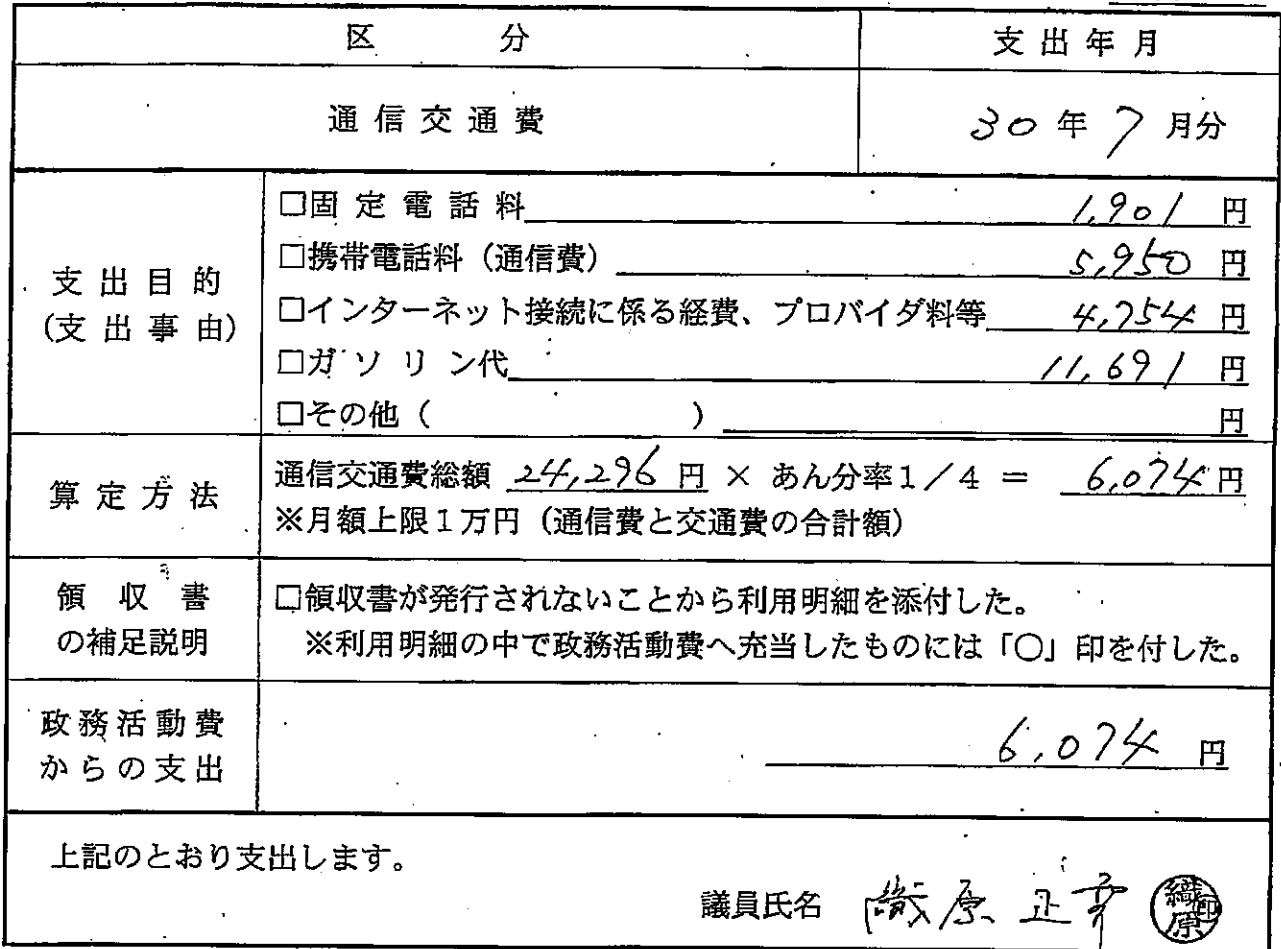 区分 支出年月
通信交通費 30年7月分
支出目的
(支出事由)
□固定電話料 1,901 円
□携帯電話料(通信費) 5,950 円
□インターネット接続に係る経費、プロバイダ料等 4,754 円
□ガソリン代 11,691 円
□その他( ) 円
算定方法
通信交通費総額 24,296 円 × あん分率1/4 = 6,074 円
※月額上限1万円(通信費と交通費の合計額)
領収書
の補足説明
□領収書が発行されないことから利用明細を添付した。
※利用明細の中で政務活動費へ充当したものには「○」印を付した。
政務活動費
からの支出
6,074 円
上記のとおり支出します。
議員氏名 織原正 織原 印